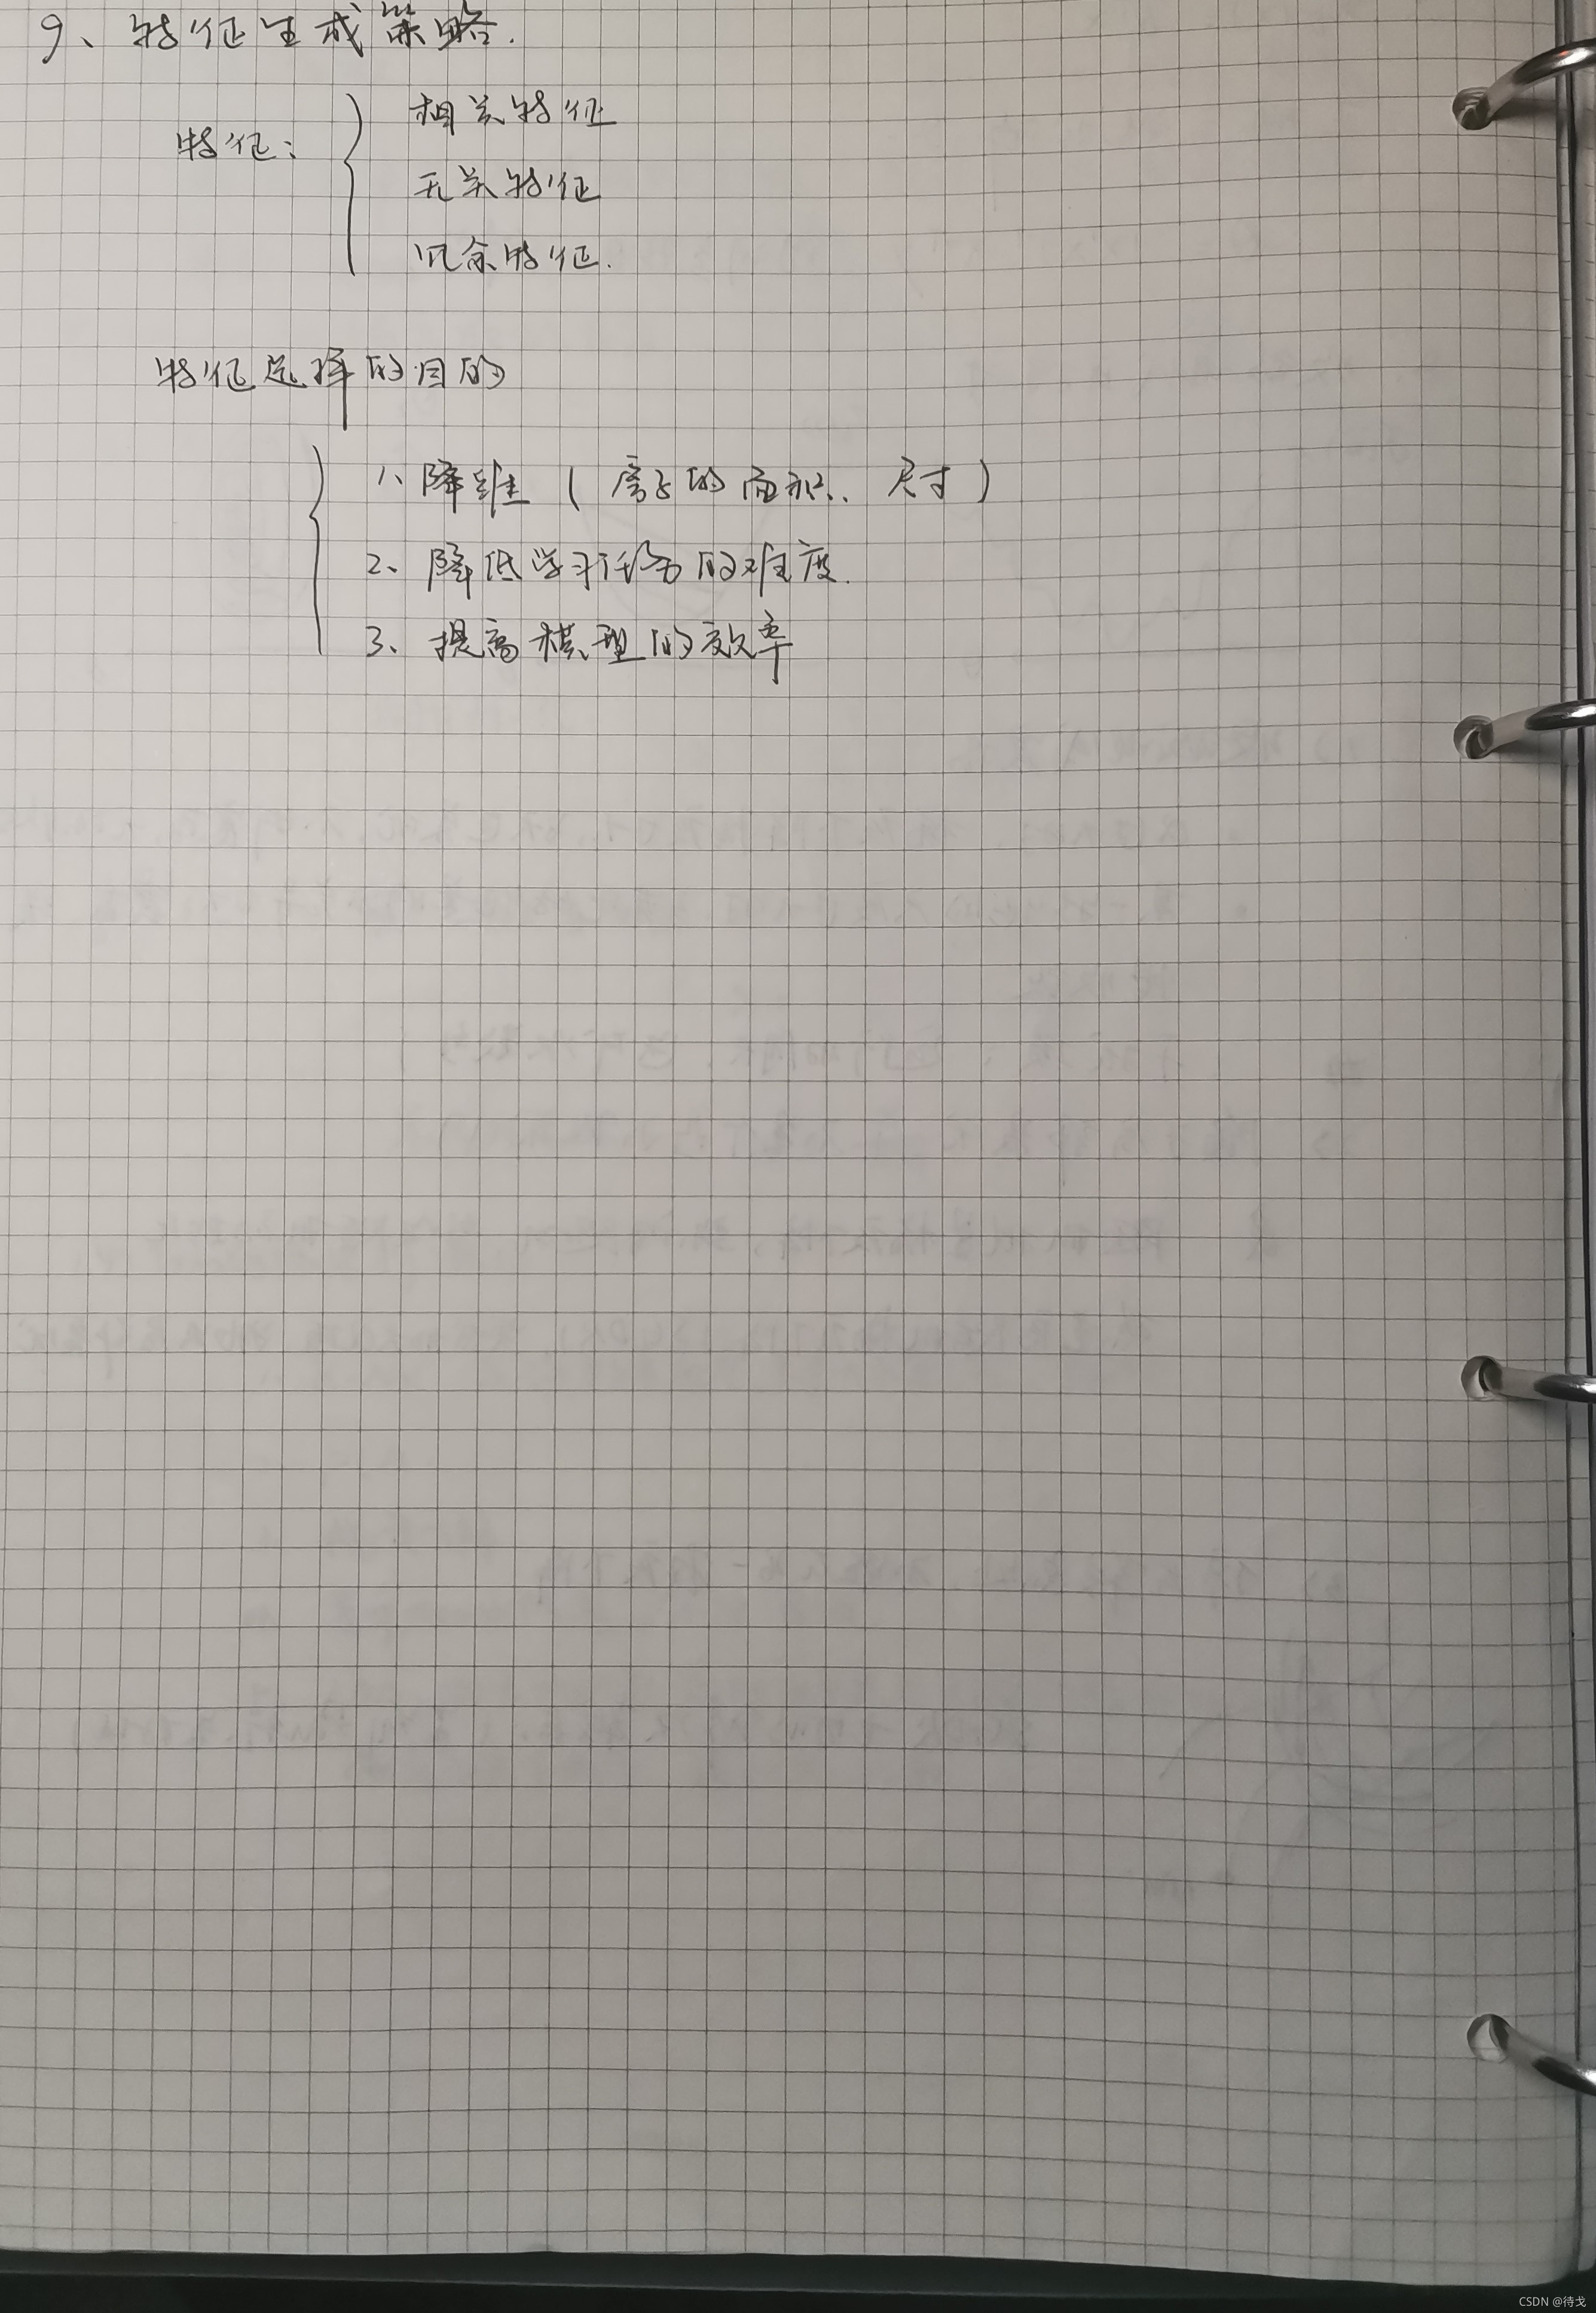 9、特征生成策略.
特征：
相关特征
无关特征
冗余特征.
特征选择的目的
1、降维（房子的面积、尺寸）
2、降低学习任务的难度.
3、提高模型的效率
CSDN @待戈